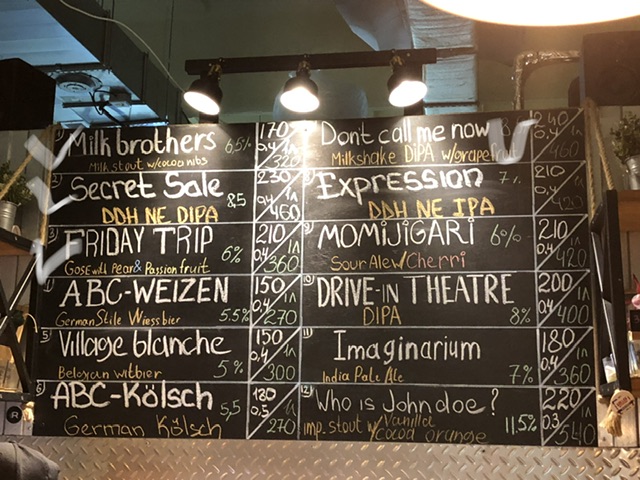 1) Milk brothers 6.5% 170 0.4 1л 320
Milk stout w/cocoa nibs
2) Secret Sale 8,5 230 0,4 1л 460
DDH NE DIPA
3) FRIDAY TRIP 6% 210 0.4 1л 360
GOSE with Pear & Passion fruit
4) ABC-WEIZEN 5.5% 150 0,4 1л 270
German Stile Wiessbier
5) Village blanche 5% 150 0.4 1л 300
Belgian witbier
6) ABC-Kölsch 5,5 180 0.5 1л 270
German Kölsch
Dont call me now 240 0.4 1л 460
Milkshake DIPA w/grapefruit
Expression 7% 210 0,4 1л 420
DDH NE IPA
9) MOMIJIGARI 6% 210 0.4 1л 420
Sour Ale w/Cherri
10) DRIVE-IN THEATRE 8% 200 0.4 1л 400
DIPA
11) Imaginarium 7% 180 0.4 1л 360
India Pale Ale
12) Who is John doe? 11.5% 220 0.3 1л 540
imp. stout w/Vanilla
cocoa orange